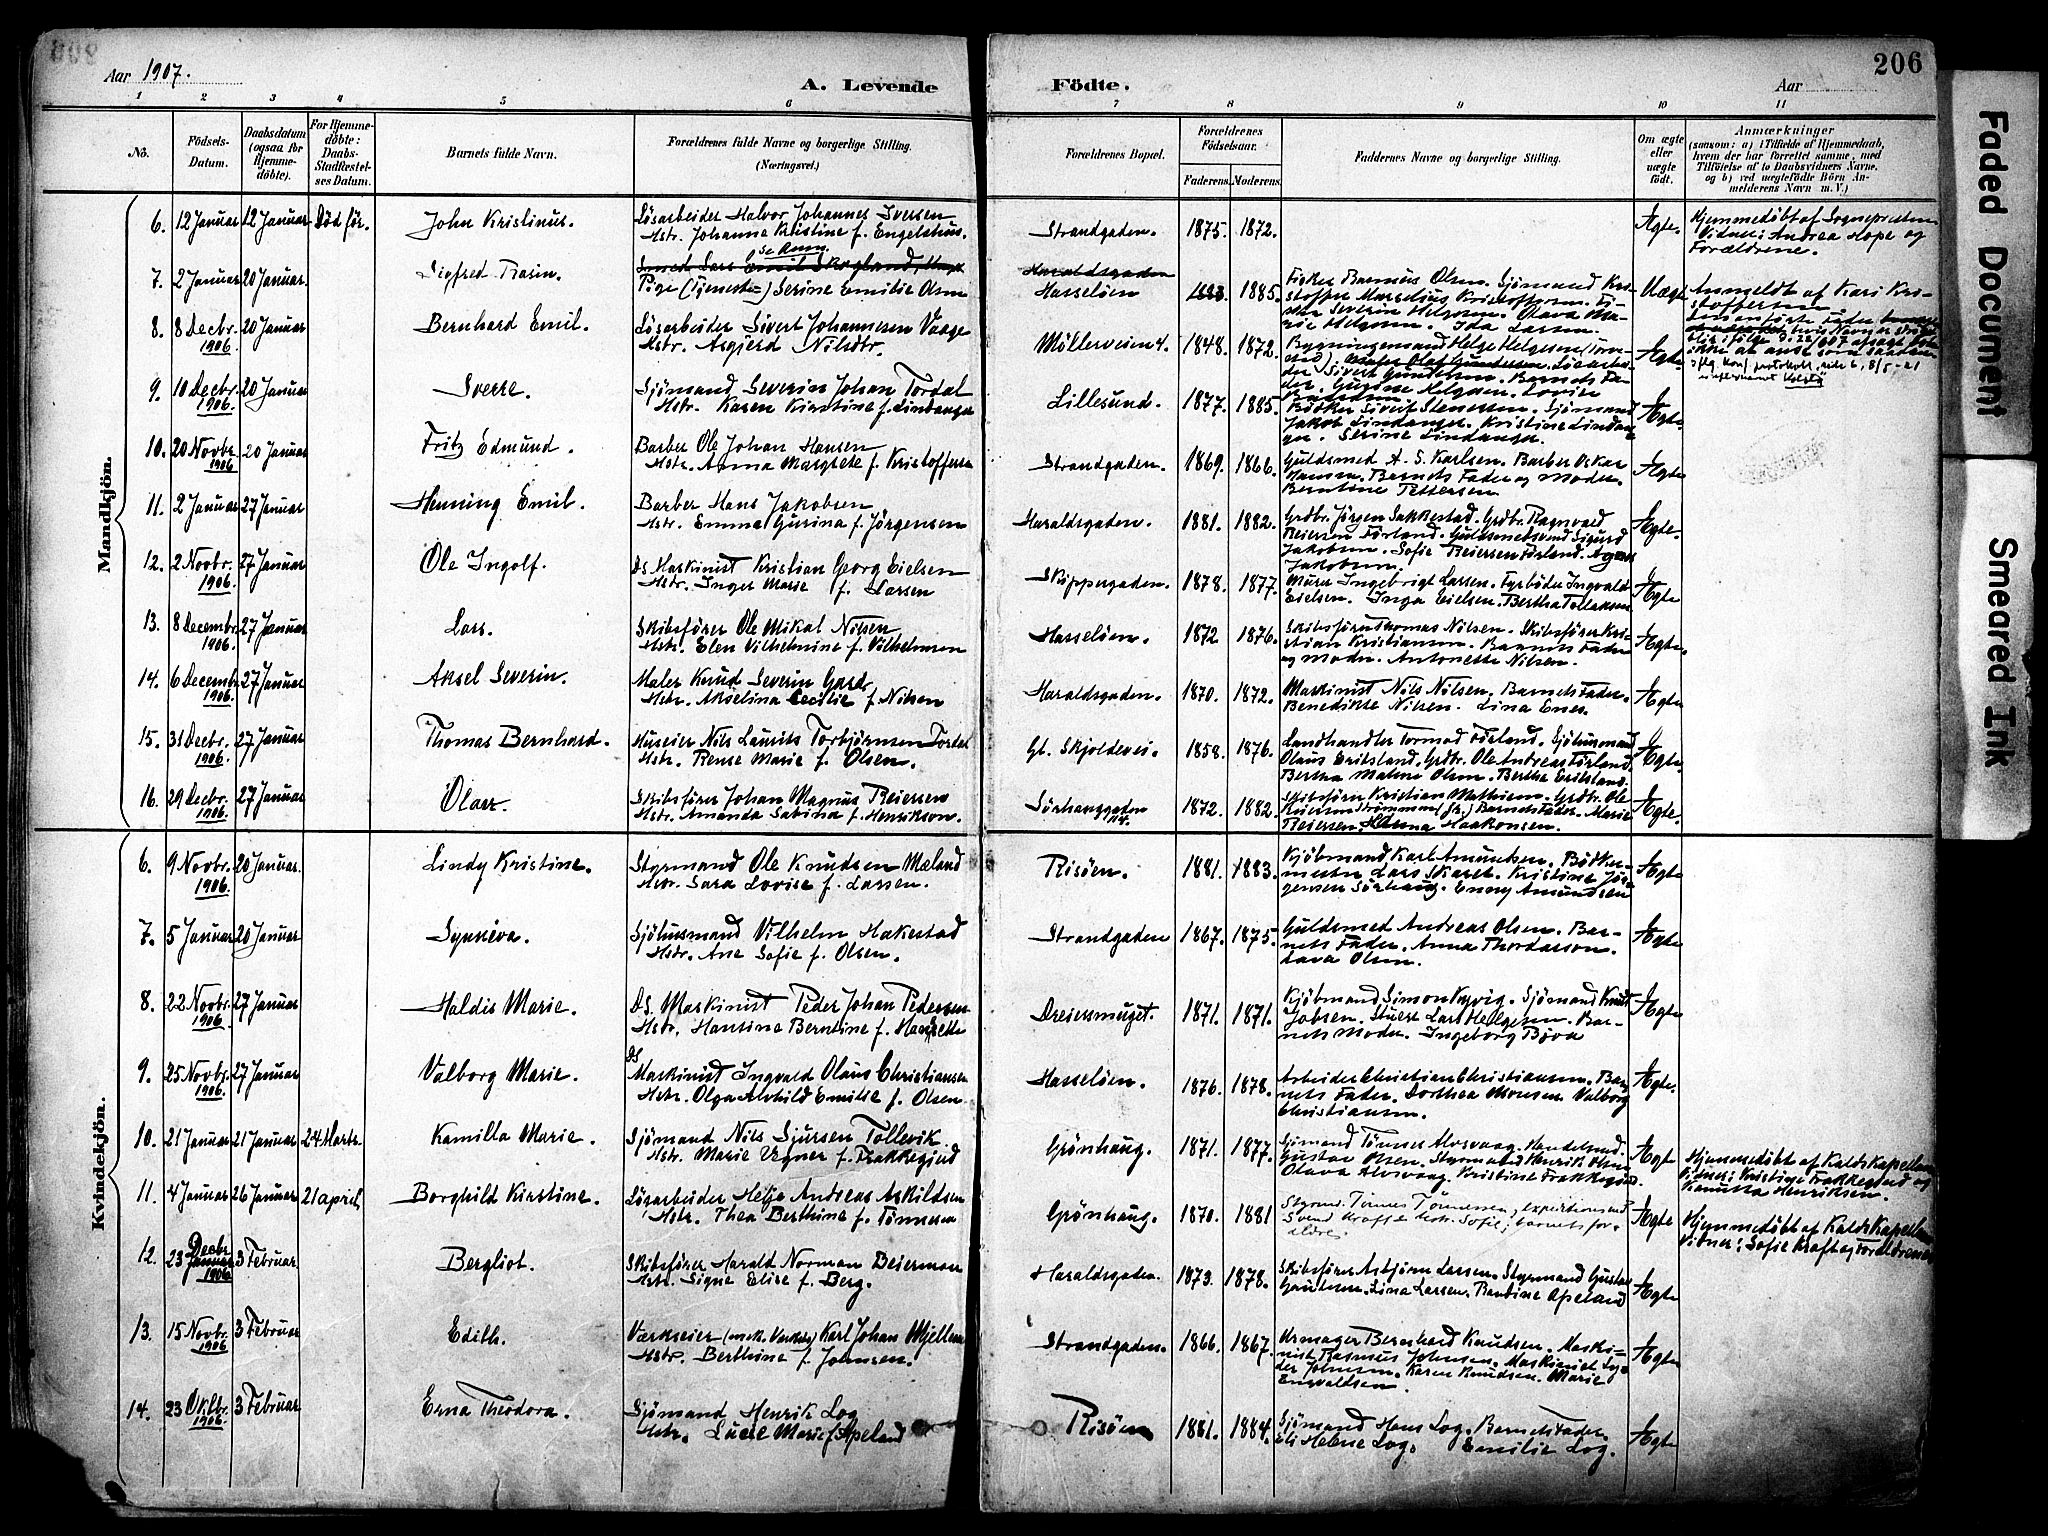 206
Aar 1907.
A. Levende
Födte.
Aar
1 2 3 4 5 6 7 8 9 10 11
No.
Födsels-
Datum.
Daabsdatum
(ogsaa for
Hjemme-
döbte).
For Hjemme-
döbte:
Daabs-
Stadfæstel-
ses Datum.
Barnets fulde Navn.
Forældrenes fulde Navne og borgerlige Stilling.
(Næringsvei.)
Forældrenes Bopæl.
Forældrenes
Födselsaar.
Faderens.
Moderens.
Faddernes Navne og borgerlige Stilling.
Om ægte
eller
uægte
født.
Anmærkninger
(saasom: a) i Tilfælde af Hjemmedaab,
hvem der har forrettet samme, med
Tilföielse af to Daabsvidners Navne,
og b) ved uægtefödte Börn An-
melderens Navn m. V.)
Mandkjön.
6. 12 Januar 12 Januar Död før. John Kristinus. Løsarbeider Halvor Johannes Iversen
Hstr. Johanna Kristine f. Engelshus.
Strandgaden. 1875. 1872. Ægte. Hjemmedøbt af Sognepresten
Vidner: Andrea Hope og
Forældrene.
7. 2 Januar 20 Januar. Sigfred Rasin.
Se Anm.
Pige (Tjeneste) Serine Emilie Olsen
Haraldsgaden
Hasseløen 1885. Fisker Rasmus Olsen. Sjömand Kri-
stoffer Marselius Kristoffersen. Fi-
sker Severin Helgesen. Olava Ma-
rie Helgesen. Ida Larsen.
Uægte Anmeldt af Kari Kri-
stoffersen
8. 8 Decbr. 1906. 20 Januar Bernhard Emil. Løsarbeider Sivert Johannesen Vaage
Hstr. Asgjerd Nilsdtr.
Möllerveien 4. 1848. 1872. Bygningsmand Helge Helgesen
Ægte
9. 10 Decbr. 1906. 20 Januar Sverre. Sjömand Severin Johan Tordal
Hstr. Karen Kirstine f. Lindanger
Lillesund. 1877. 1885. Bødker Sivert Stensen. Sjömand
Jakob Lindanger. Kristine Lindan-
ger. Serine Lindanger.
Ægte.
10. 20 Novbr. 1906 20 Januar Fritz Edmund. Barber Ole Johan Hansen
Hstr. Anna Margrete f. Kristoffersen
Strandgaden. 1869. 1866. Guldsmed A. S. Karlsen. Barber Oskar
Hansen. Barnets Fader og Moder.
Berntine Pettersen
Ægte.
11. 2 Januar 27 Januar Henning Emil. Barber Hans Jakobsen
Hstr. Emma Gurina f. Jörgensen
Haraldsgaden. 1881. 1882. Grdbr. Jörgen Sakkestad. Grdbr. Ragnvald
Reiersen Førland. Guldsmedsvend Sigurd
Jakobsen. Sofie Reiersen Førland. Agnes
Jakobsen.
Ægte.
12. 2 Novbr. 1906. 27 Januar Ole Ingolf. DS Maskinist Kristian Georg Eielsen
Hstr. Inger Marie f. Larsen
Skippergaden. 1878. 1877. Murer Ingebrigt Larsen. Fyrbøter Ingvald
Eielsen. Inga Eielsen. Bertha Tollaksen
Ægte
13. 8 Decembr. 1906. 27 Januar Lars. Skibsfører Ole Mikal Nilsen
Hstr. Elen Vilhelmine f. Vilhelmsen
Hasseløen. 1872 1876. Skibsfører Thomas Nilsen. Skibsfører Kri-
stian Kristiansen. Barnets Fader
og Moder. Antonette Nilsen.
Ægte.
14. 6 Decembr. 1906. 27 Januar Aksel Severin. Maler Knud Severin Gard
Hstr. Akselina Cecilie f. Nilsen
Haraldsgaden. 1870. 1872. Maskinist Nils Nilsen. Barnets Fader.
Benedikte Nilsen. Lina Enes.
Ægte
15. 31 Decbr. 1906. 27 Januar Thomas Bernhard. Huseier Nils Laurits Torbjörnsen Tordal
Hstr. Rense Marie f. Olsen.
Gl. Skjoldevei. 1858. 1876. Landhandler Tormod Førland. Sjöhusmand
Olaus Eriksland. Grdbr. Ole Andreas Førland.
Bertha Maline Olsen. Berthe Eriksland
Ægte.
16. 29 Decbr. 1906. 27 Januar Olav. Skibsfører Johan Magnus Reiersen
Hstr. Amanda Sabina f. Henrikson.
Sørhauggaden 14. 1872. 1882. Skibsfører Kristian Mathisen. Grdbr. Ole
Reiersen Strömmen (Sr.) Barnets Fader. Marie
Reiersen. Hanna Haakonsen.
Ægte.
Kvindekjön.
6. 9 Novbr. 1906. 20 Januar. Lindy Kristine. Styrmand Ole Knudsen Mæland
Hstr. Sara Lovise f. Larsen.
Risöen. 1881. 1883. Kjøbmand Karl Amundsen. Bødker-
mester Lars Skaret. Kristine Jör-
gensen Sörhaug. Enny Amundsen
Ægte
7. 5 Januar 20 Januar Synneva. Sjöhusmand Vilhelm Hakestad
Hstr. Ane Sofie f. Olsen.
Strandgaden 1867. 1875. Guldsmed Andreas Olsen. Bar-
nets Fader. Anna Thordarson.
Lava Olsen.
Ægte
8. 22 Novbr. 1906. 27 Januar Haldis Marie. DS. Maskinist Peder Johan Pedersen
Hstr. Hansina Berntine f. Hansette
Dreiersmuget. 1871. 1871. Kjøbmand Simon Kyvig. Sjömand Knut
Jobsen. Stuert Lars Helgesen. Bar-
nets Moder. Ingeborg Bjoa
Ægte
9. 25 Novbr. 1906. 27 Januar Valborg Marie. DS
Maskinist Ingvald Olaus Christiansen
Hstr. Olga Alvhild Emilie f. Olsen
Hasseløen. 1876. 1878. Arbeider Christian Christiansen. Bar
nets Fader. Dorthea Monsen. Valborg
Christiansen.
Ægte.
10. 21 Januar 21 Januar 24 Marts. Kamilla Marie. Sjömand Nils Sjursen Tollevik
Hstr. Marie Agner f. Frakkegjerd
Grönhaug. 1871. 1877. Sjömand Tønnes Alvsvaag. Handelsmd.
Gustav Olsen. Styrmand Henrik Olsen
Olava Alvsvaag. Kristine Frakkegjerd.
Ægte Hjemmedøbt af Kaldskapellan
Vidner: Kristine Frakkegjerd og
Kamilla Henriksen.
11. 4 Januar 26 Januar 21 april Borghild Kirstine. Løsarbeider Helje Andreas Askildsen
Hstr. Thea Berthine f. Tönnesen
Grönhaug. 1870. 1881 Styrm. Tønnes Tønnesen, expeditionsmd
Svend Kraft & Hstr. Sofie; barnets for-
ældre.
Ægte Hjemmedøbt af Kaldskapellan
Vidner: Sofie Kraft og Forældrene
12. 23 Decbr. Januar 1906 3 Februar Bergliot. Skibsfører Harald Norman Beierman
Hstr. Signe Elise f. Berg.
Haraldsgaden. 1873. 1878. Skibsfører Asbjörn Larsen. Styrmand Gustav
Lina Larsen. Randine Apeland
Ægte
13. 15 Novbr. 1906 3 Februar Edith. Værkseier (mek. Værksted) Karl Johan Mjellem
Hstr. Berthine f. Johnsen.
Strandgaden. 1866. 1867. Urmager Bernhard Knudsen. Maski-
nist Rasmus Johnsen. Maskinist Pe-
der Johnsen. Karen Knudsen. Marie
Engvaldsen.
Ægte
14. 23 Oktbr. 1906. 3 Februar Erna Theodora. Sjömand Henrik Log
Hstr. Lucie Marie f. Apeland
Risöen 1881. 1884. Sjömand Hans Log. Barnets Fader.
Eli Helene Log. Emilie Log.
Ægte
Faded Document
Smeared Ink